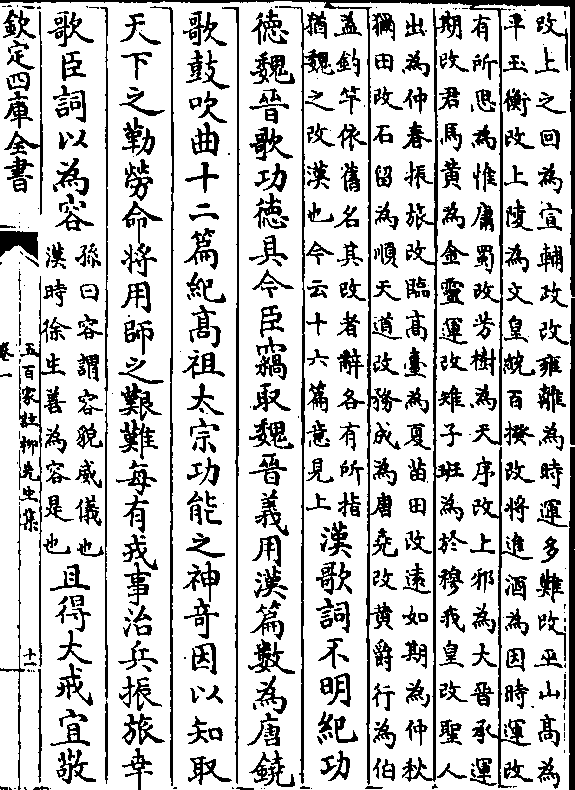 改上之回為宣輔政改雍離為時運多難改巫山髙為
平玉衡改上陵為文皇統百揆改將進酒為因時運改
有所思為惟庸蜀改芳樹為天序改上邪為大晉承運
期改君馬黄為金靈運改雉子班為於穆我皇改聖人
出為仲春振旅改臨髙臺為夏苗田改逺如期為仲秋
獮田改石留為順天道改務成為唐堯改黄爵行為伯
益釣竿依舊名其改者辭各有所指
猶魏之改漢也今云十六篇意見上
漢歌詞不明紀功
徳魏晉歌功徳具今臣竊取魏晉義用漢篇數為唐鐃
歌鼓吹曲十二篇紀髙祖太宗功能之神竒因以知取
天下之勤勞命将用師之艱難每有戎事治兵振旅幸
歌臣詞以為容
孫曰容謂容貌威儀也
漢時徐生善為容是也
且得大戒宜敬
欽定四庫全書
五百家註柳先生集
卷一
十一